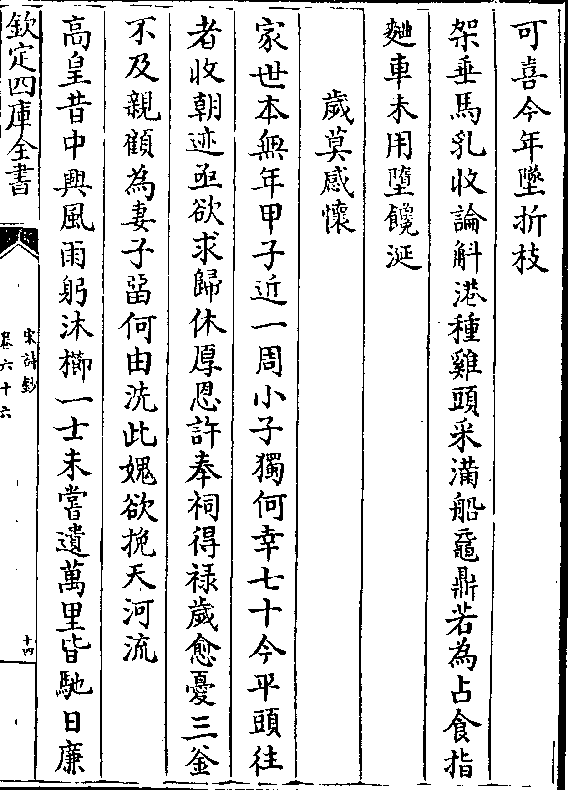 可喜今年墜折枝
架垂馬乳收論斛港種雞頭采滿船黿鼎若為占食指
麴車未用墮饞涎
歲莫感懷
家世本無年甲子近一周小子獨何幸七十今平頭往
者收朝迹亟欲求歸休厚恩許奉祠得禄歲愈憂三釜
不及親顧為妻子畱何由洗此媿欲挽天河流
高皇昔中興風雨躬沐櫛一士未嘗遺萬里皆馳日廉
欽定四庫全書
宋詩鈔
卷六十六
十四